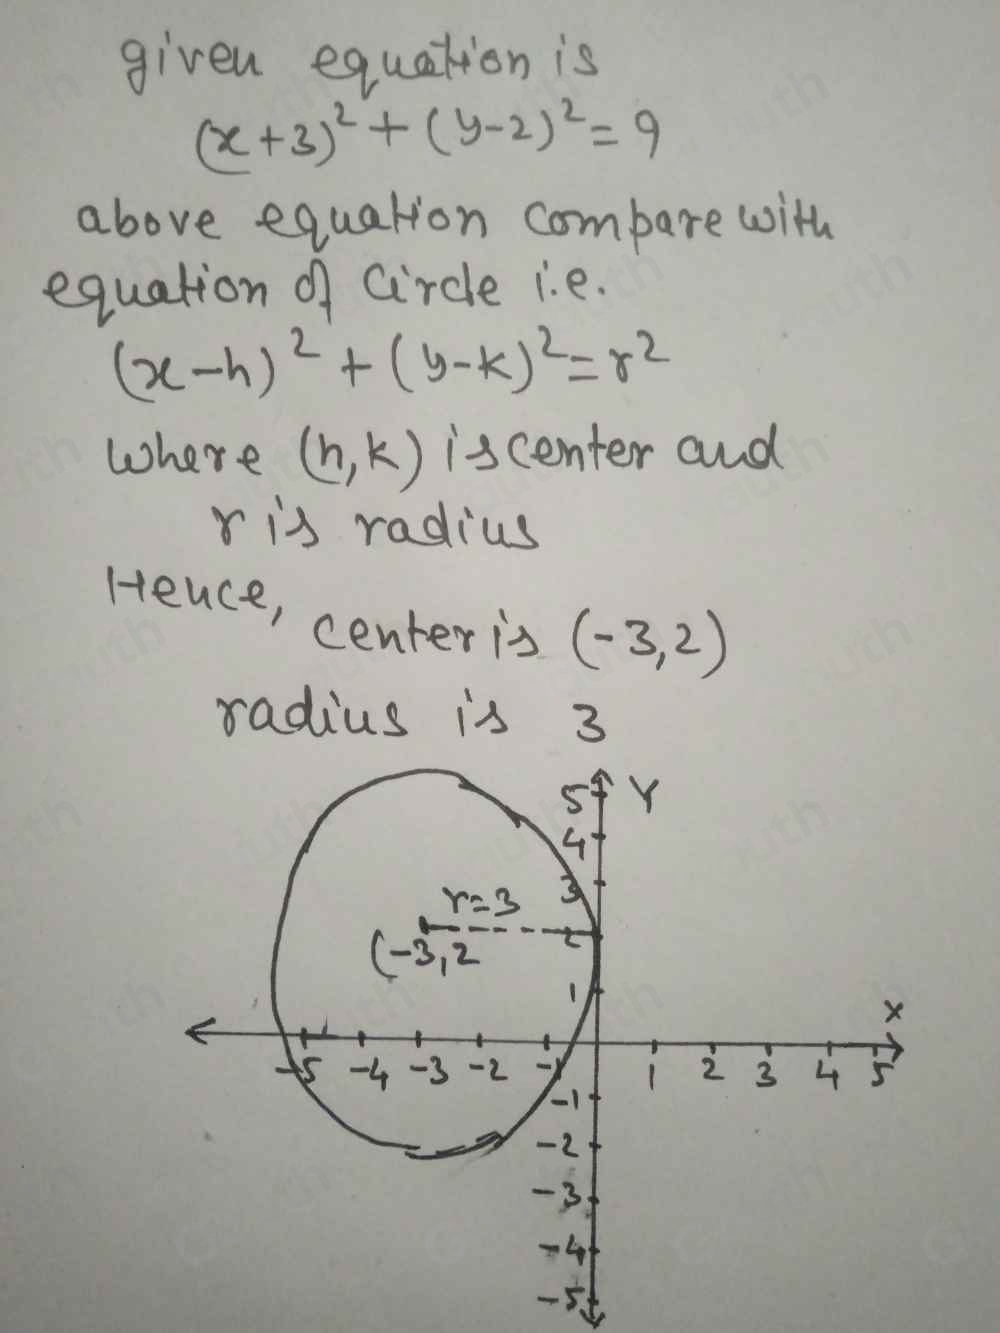 given equation is
(x+3)² + (y-2)² = 9
above equation compare with
equation of circle i.e.
(x-h)² + (y-k)² = r²
where (h,k) is center and
r is radius
Hence,
center is (-3,2)
radius is 3
5 Y
4
3
r=3
2
(-3,2
1
X
-5 -4 -3 -2 -1 1 2 3 4 5
-1
-2
-3
-4
-5